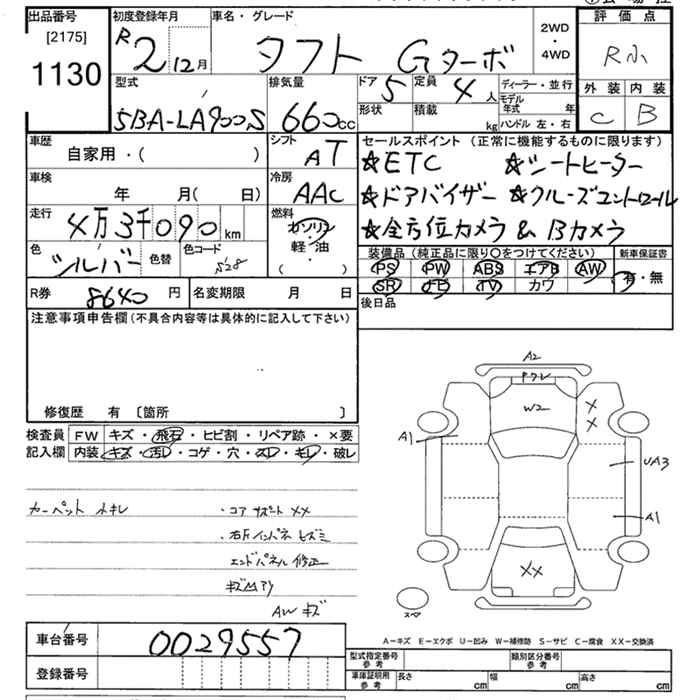 出品番号
[2175]
1130
初度登録年月
R2 12月
車名・グレード
タフト Gターボ
2WD
・
4WD
評価点
R
外装 内装
C B
型式
5BA-LA900S
排気量
660cc
ドア 5
定員 4人
形状
積載 kg
ディーラー・並行
モデル年式 年
ハンドル 左・右
車歴
自家用・( )
シフト
AT
セールスポイント (正常に機能するものに限ります)
☆ETC ☆シートヒーター
☆ドアバイザー ☆クルーズコントロール
☆全方位カメラ & Bカメラ
車検
年 月( 日)
冷房
AAC
走行
4万3千090km
燃料
ガソリン
軽・油
( )
色
シルバー
色替
色コード
S28
装備品 (純正品に限り○をつけてください)
新車保証書
PS PW ABS エアB AW
SR ナビ TV カワ
有・無
R券 8640円
名変期限 月 日
後日品
注意事項申告欄 (不具合内容等は具体的に記入して下さい)
修復歴 有 〔箇所 〕
検査員
記入欄
FW キズ・飛石・ヒビ割・リペア跡・×要
内装 キズ・汚レ・コゲ・穴・スレ・キレ・破レ
カーペット
・コアサポート XX
・右Fインパネ ヒズミ
エンドパネル 修正
AW キズ
A2
W2
X
X
A1
UA3
A1
XX
スペア
A-キズ E-エクボ U-凹み W-補修跡 S-サビ C-腐食 XX-交換済
車台番号
0029557
登録番号
型式指定番号
参考
類別区分番号
参考
車庫証明用
参考
長さ cm
幅 cm
高さ cm